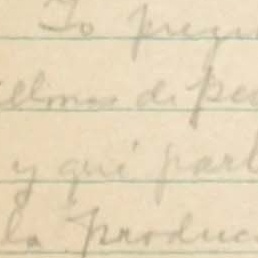 Yo pregu
illones de pe
y qué part
la produc